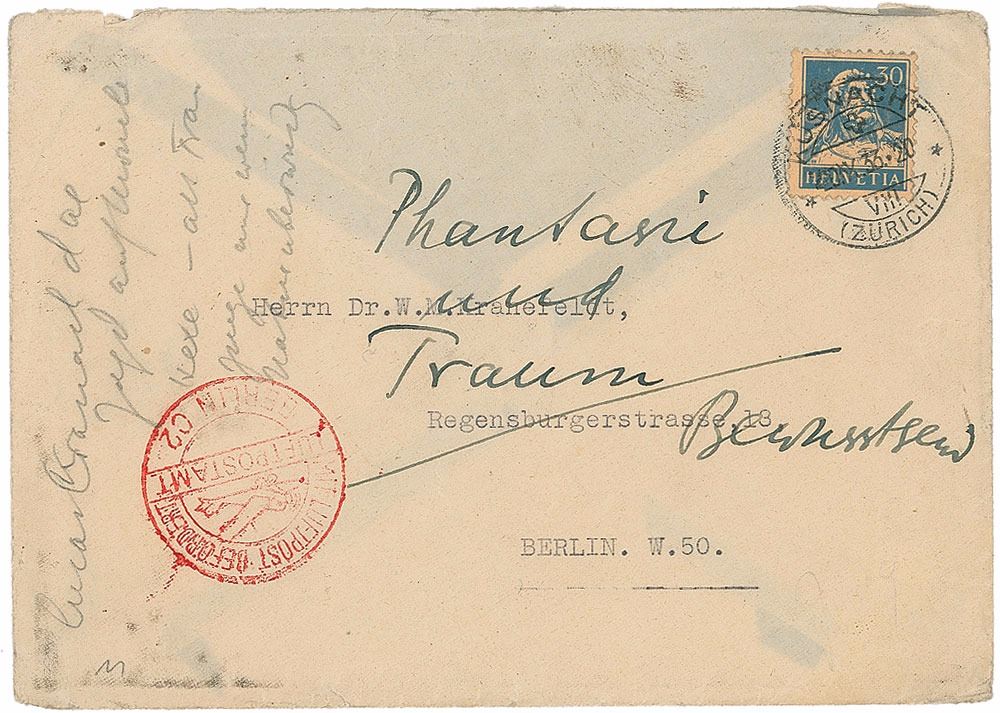 30
HELVETIA
KÜSNACHT
VIII
(ZÜRICH)
Phantasie
und
Traum
Bewusstsein
Herrn Dr.W.M.Kranefeldt,
Regensburgerstrasse 18
BERLIN. W.50.
MIT LUFTPOST BEFÖRDERT
LUFTPOSTAMT
BERLIN C2
Lucas Cranach d ae
Jagd auf
Hexe – als Frau